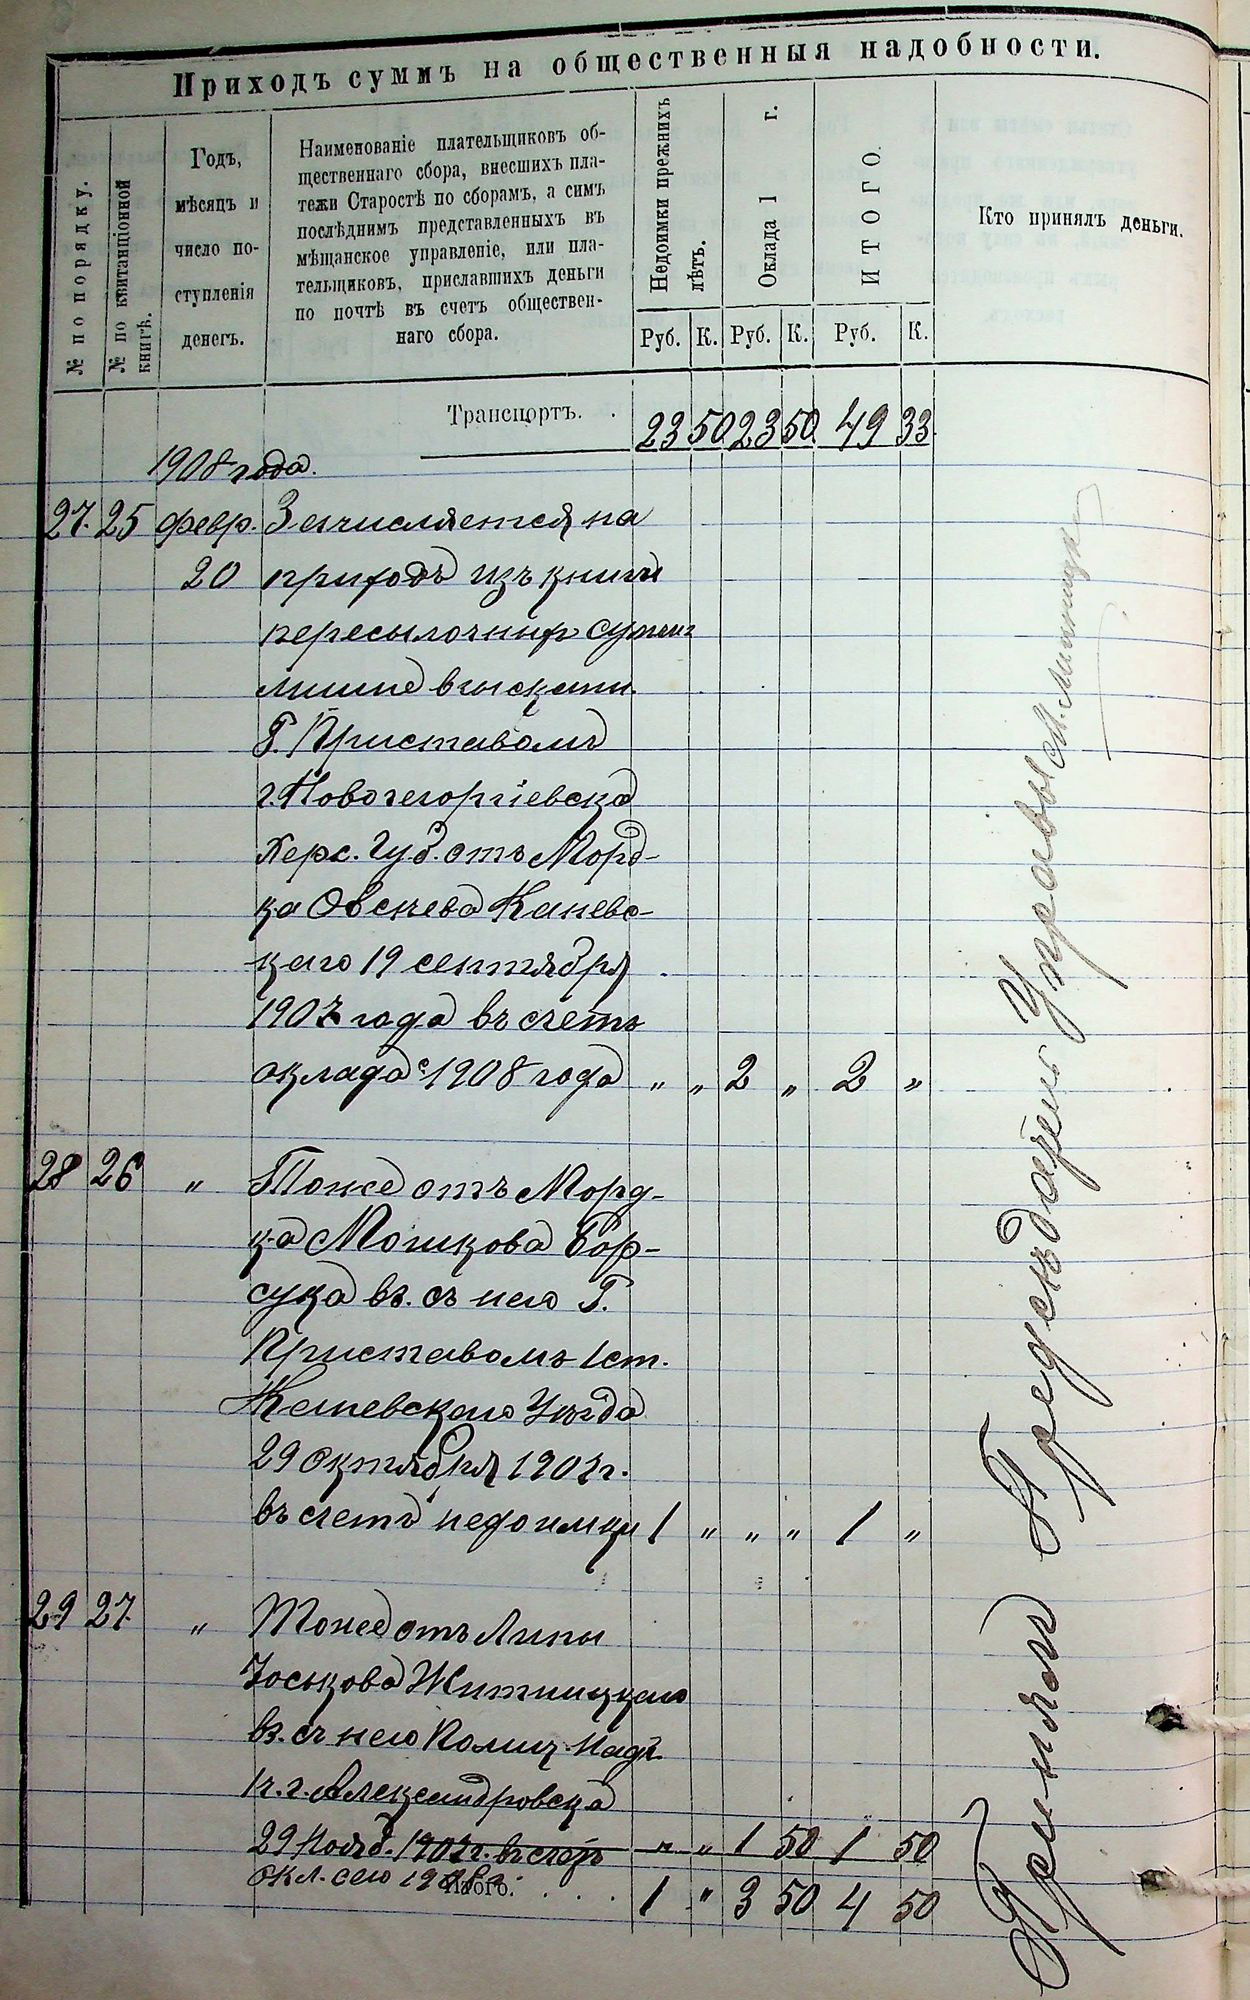 Приходъ суммъ на общественныя надобности.
№ по порядку.
№ по квитанціонной
книгѣ.
Годъ,
мѣсяцъ и
число по-
ступленія
денегъ.
Наименованіе плательщиковъ об-
щественнаго сбора, внесшихъ пла-
тежи Старостѣ по сборамъ, а симъ
послѣднимъ представленныхъ въ
мѣщанское управленіе, или пла-
тельщиковъ, приславшихъ деньги
по почтѣ въ счетъ обществен-
наго сбора.
Недоимки прежнихъ
лѣтъ.
Оклада 1 г.
ИТОГО.
Кто принялъ деньги.
Руб. К. Руб. К. Руб. К.
Транспортъ. . 23 50 23 50 49 33
1908 года.
27. 25 февр. Зачисляется на
20 приходъ изъ книги
пересылочныхъ суммъ
Г. Приставомъ
г. Новогеоргіевска
Херс. Губ. отъ Морд-
ка Овсѣева Каневс-
каго 19 сентября
1907 года въ счетъ
оклада 1908 года „ „ 2 „ 2 „
28 26 „ Тоже отъ Морд-
ка Мошкова Бор-
сука вз. съ него Г.
Приставомъ 1 ст.
Уѣзда
29 октября 1907 г.
въ счетъ недоимки 1 „ „ „ 1 „
29 27. „ Тоже отъ Липы
Іоськова Житницкаго
вз. съ него Полиц. Надз.
г. Александровска
29 Нояб. 1907 г. въ счетъ „ „ 1 50 1 50
окл. сего 1908 г.
Итого. . . . 1 „ 3 50 4 50
Принялъ Предсѣдатель Управы